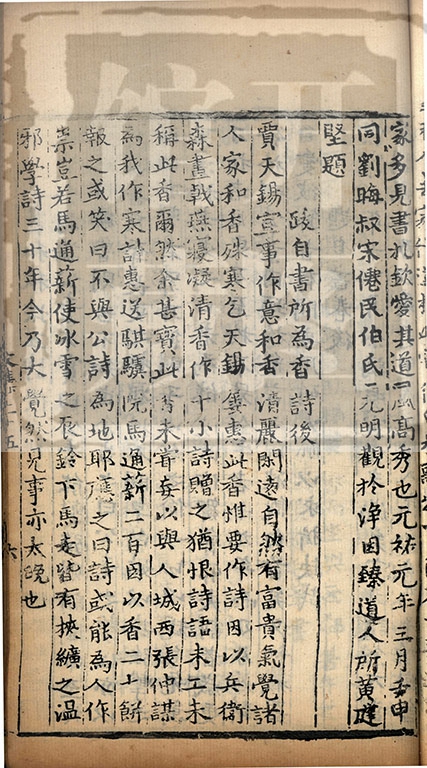 家多見書札欽愛其道高秀也元祐元年三月壬申
同劉晦叔宋僊民伯氏元明觀於浄因臻道人所黄庭
堅題
跋自書所為香詩後
賈天錫宣事作意和香清麗閑遠自然有富貴氣覺諸
人家和香殊寒乞天錫屢惠此香惟要作詩因以兵衛
森畫戟燕寢凝清香作十小詩贈之猶恨詩語未工未
稱此香爾然余甚寶此香未甞妄以與人城西張仲謀
為我作寒計惠送騏驥院馬通薪二百因以香二十餅
報之或笑曰不與公詩為地耶應之曰詩或能為人作
祟豈若馬通薪使冰雪之辰鈴下馬走皆有挾纊之温
邪學詩三十年今乃大覺然見事亦太晚也